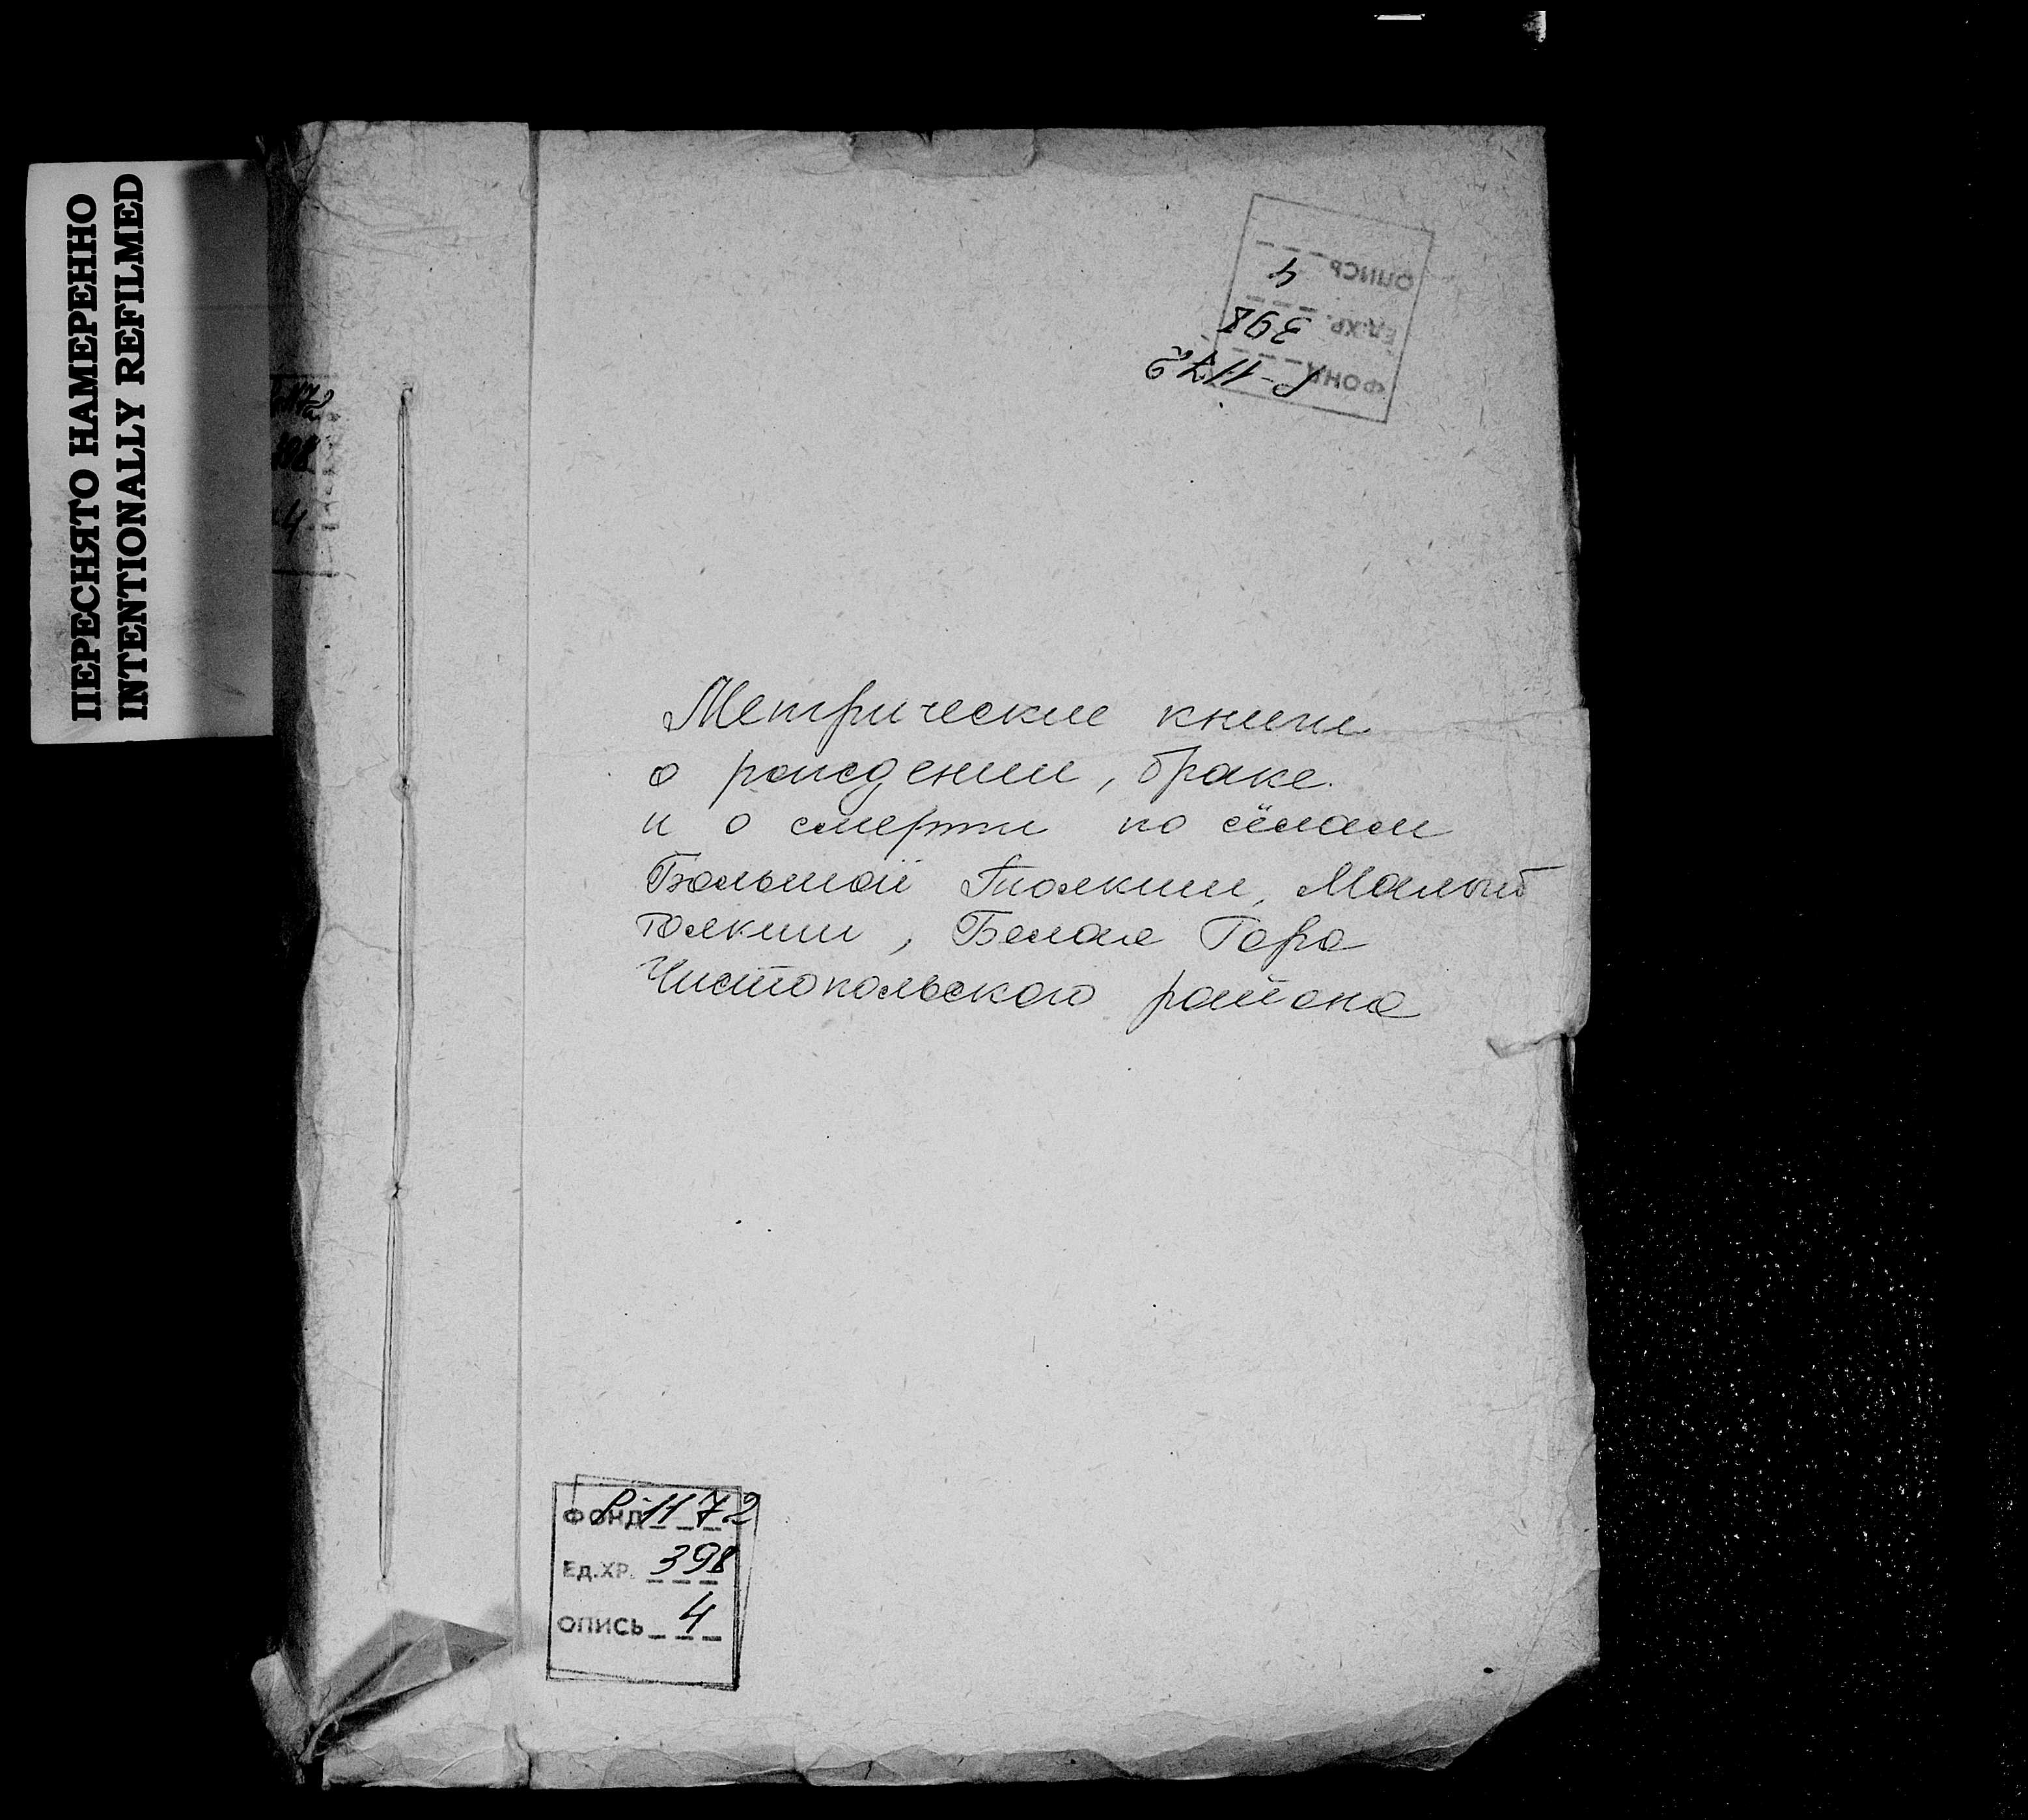 ПЕРЕСНЯТО НАМЕРЕННО
INTENTIONALLY REFILMED
ОПИСЬ 4
Ед.ХР. 398
ФОНД Р-1172
1172
398
4
Метрические книги
о рождении, браке
и о смерти по сёлам
Большой Толкиш, Малый
толкиш, Белая Гора
Чистопольского района
ФОНД Р-1172
Ед.ХР. 398
ОПИСЬ 4